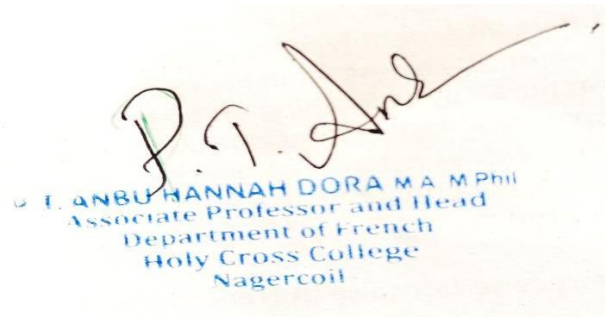 P. T. Anb
P. T. ANBU HANNAH DORA M A M Phil
Associate Professor and Head
Department of French
Holy Cross College
Nagercoil